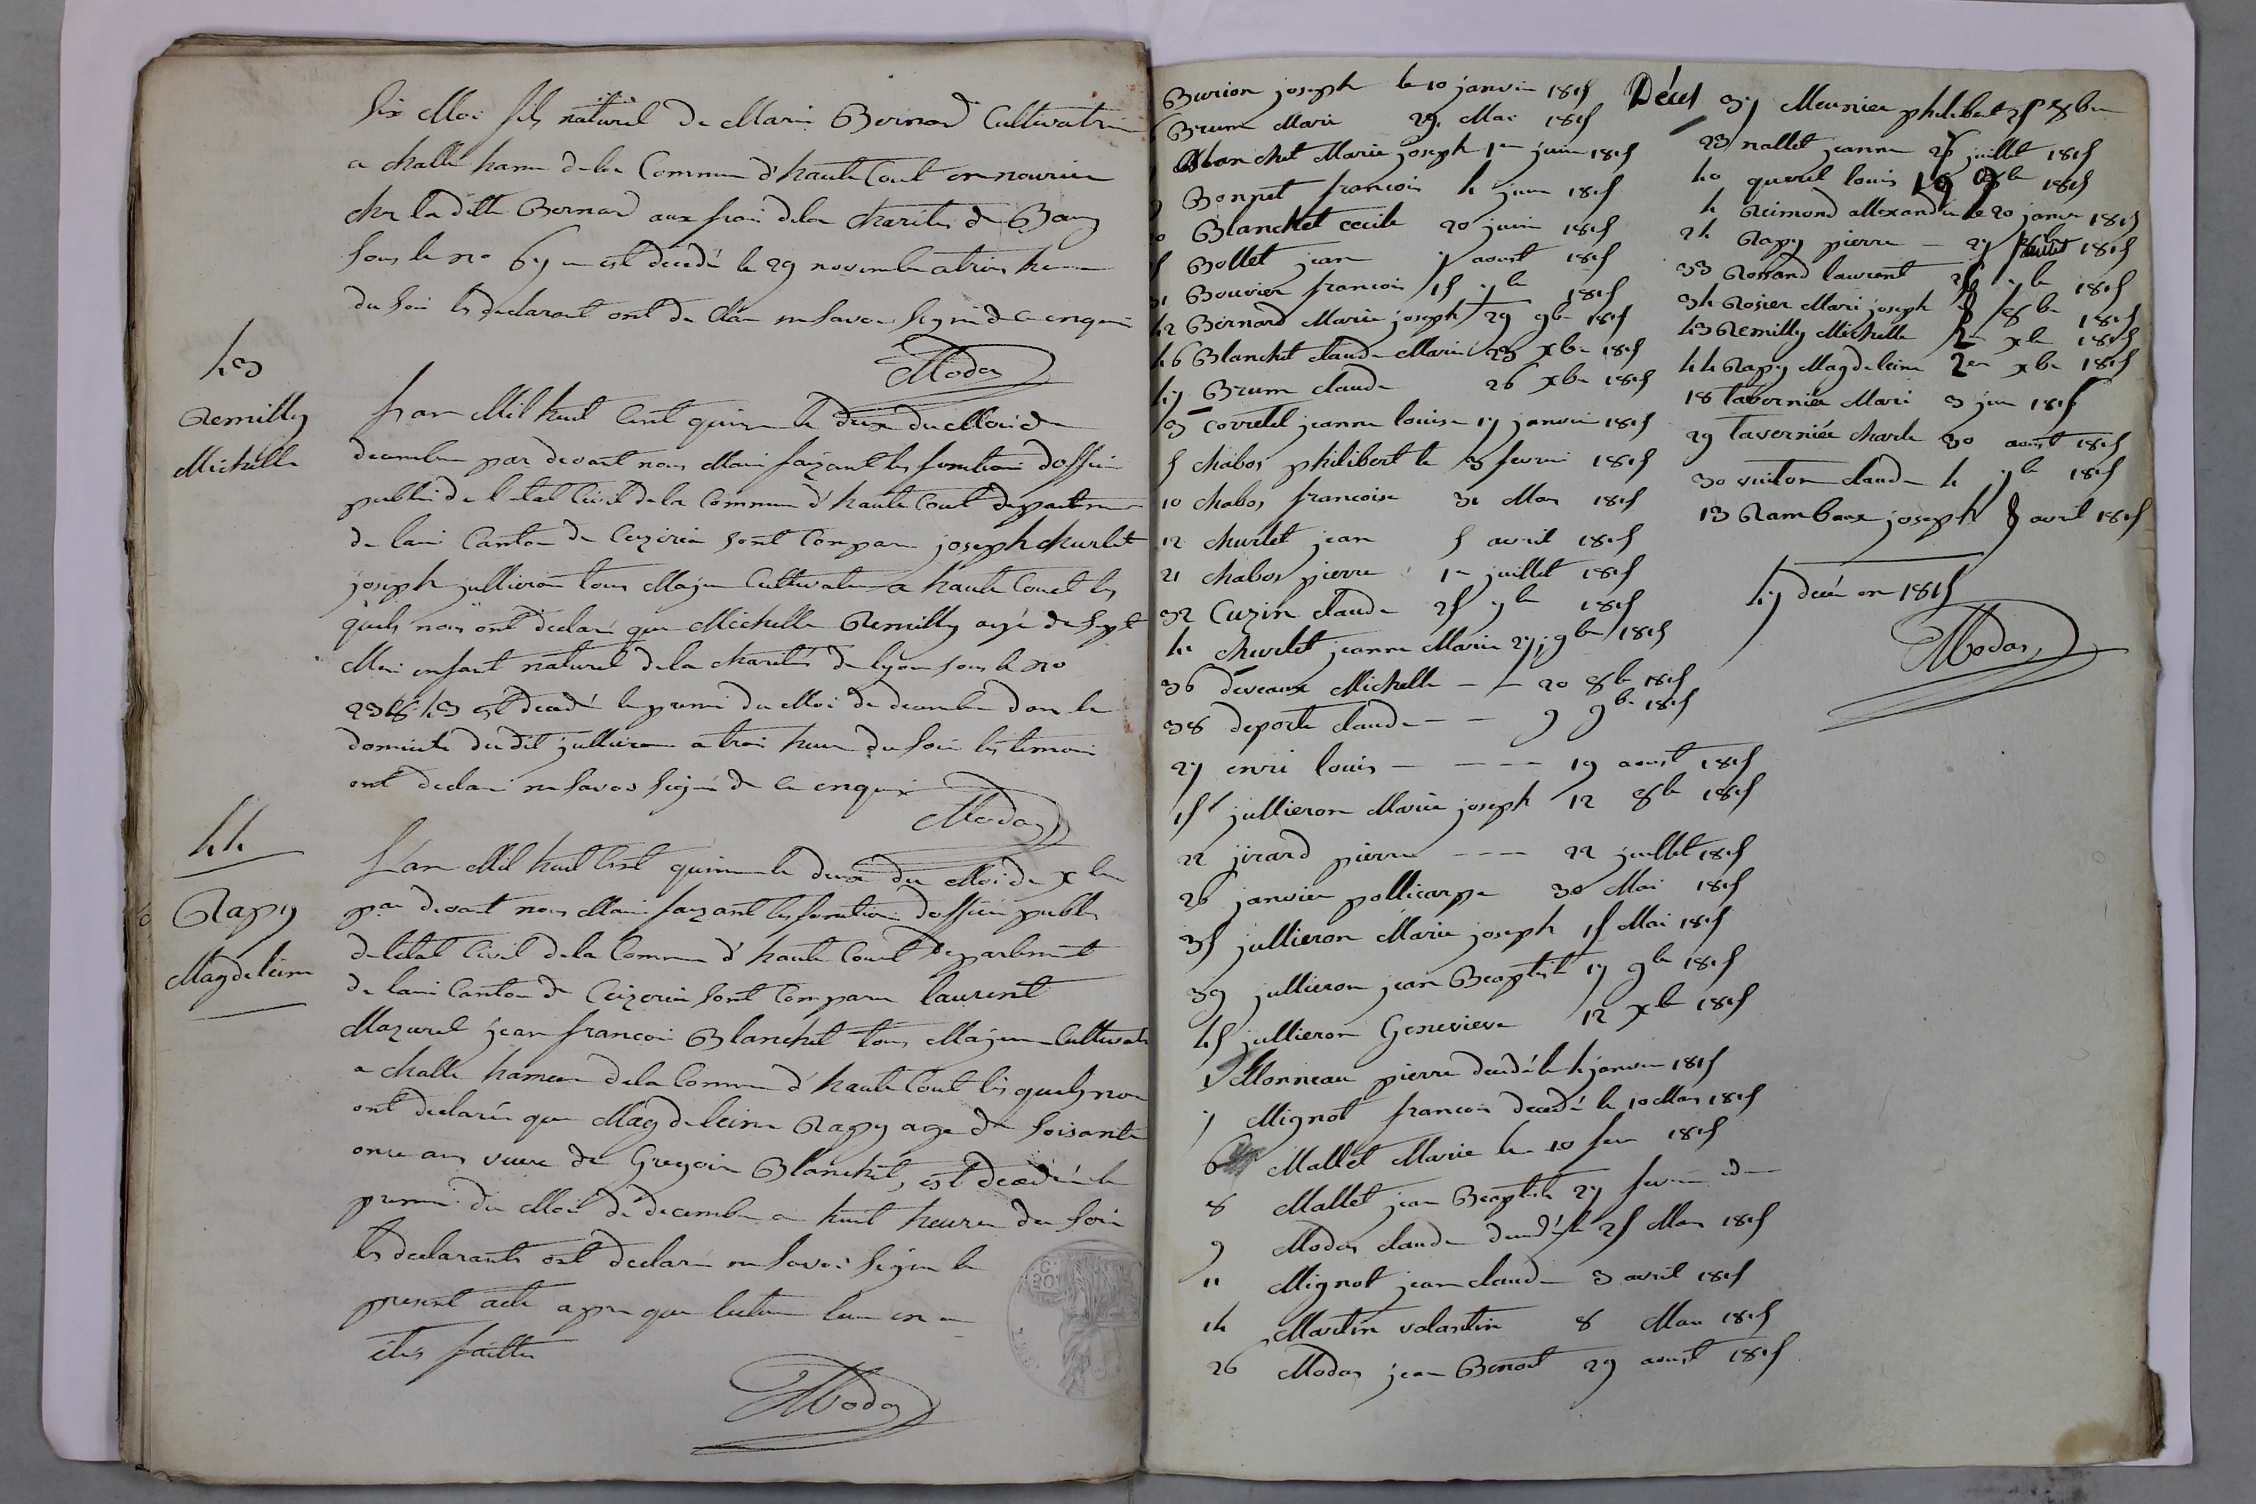 six Moi fils naturel de Marie Bernard Cultivatrice
a challe hameau de la Commune d'haute Court en nourice
chez la ditte Bernard aux frai de la charité de Bourg
sous le no 67 est decedé le 29 novembre a trois heures
du soir les declarant ont declaré ne savoir signé de ce enquis
Modas
43
Remilly
Michelle
L'an Mil huit Cent quinze le deux du Moi de
decembre par devant nous Maire faizant les fonctions d'officier
public de l'etat Civil de la Commune d'haute Court departement
de lain Canton de Ceyzeria sont Comparu joseph churlet
joseph jullieron tous Majeur Cultivateur a haute Court les
quels nous ont declaré que Michelle Remilly agé de sept
Moi enfant naturel de la charité de lyon sous le no
23843 est decedé le premier du Moi de decembre dans le
domicile du dit jullieron a trois heure du soir les temoins
ont declaré ne savoir signé de ce enquis
Modas
44
Rapy
Magdeleine
L'an Mil huit Cent quinze le deux du Moi de xbre
par devant nous Maire faizant les fonctions d'officier public
de l'etat Civil de la Commune d'haute Court departement
de lain Canton de Ceizeria sont Comparu laurent
Mazurel jean francoi Blanchet tous Majeur Cultivateur
a challe hameau de la Commune d'haute Court les quels nous
ont declarés que Magdeleine Rapy age de soisante
onze ans veuve de Gregoire Blanchet, est decedé le
premier du Moi de decembre a huit heures du soir
les declarants ont declaré ne savoir signer le
present acte apres que lecture leur en a
étés faitte
Modas
Burion joseph le 10 janvier 1815
Brum Marie 29 Mai 1815
Blanchet Marie joseph 1er juin 1815
Bonnet francois 4 juin 1815
Blanchet cecile 20 juin 1815
Bollet jean 7 aoust 1815
31 Bouvier francois 15 7bre 1815
42 Bernard Marie joseph 29 9bre 1815
46 Blanchet claude Marie 23 xbre 1815
47 Brum claude 26 xbre 1815
3 Corretel jeanne louise 17 janvier 1815
5 Chabos philibert le 3 fevrier 1815
10 chabos francoise 31 Mars 1815
12 churlet jean 5 avril 1815
21 chabos pierre 1er juillet 1815
32 Cuzin claude 25 7bre 1815
41 churlet jeanne Marie 27 9bre 1815
36 deveaux Michelle 20 8bre 1815
38 deporte claude 9 9bre 1815
27 enri louis 19 aoust 1815
15 jullieron Marie joseph 12 8bre 1815
22 jirard pierre 22 juillet 1815
26 janvier pollicarpe 30 Mai 1815
35 jullieron Marie joseph 15 Mai 1815
39 jullieron jean Beaptiste 17 9bre 1815
45 jullieron Genevieve 12 xbre 1815
1 Monneau pierre decedé le 4 janvier 1815
7 Mignot francois decedé le 10 Mars 1815
6 Mallet Marie le 10 fev 1815
8 Mallet jean Beaptiste 27 fevrier idem
9 Modas claude decedé le 25 Mars 1815
11 Mignot jean claude 3 avril 1815
14 Martin valantin 8 Mai 1815
26 Modas jean Benoit 29 aoust 1815
Décès
37 Meunier philibert 25 8bre
23 nallet jeanne 25 juillet 1815
40 querel louis 19 9bre 1815
4 Reimond allexandre le 20 janvier 1815
24 Rapy pierre 27 juillet 1815
33 Ronand laurent 25 7bre 1815
34 Rosier Mari joseph 8 8bre 1815
43 Remilly Michelle 2 xbre 1815
44 Rapy Magdeleine 2 xbre 1815
18 tavernier Mari 3 juin 1815
29 taverniée charle 30 aoust 1815
30 vuiton claude 4 7bre 1815
13 Rambaux joseph 8 avril 1815
47 decé en 1815
Modas